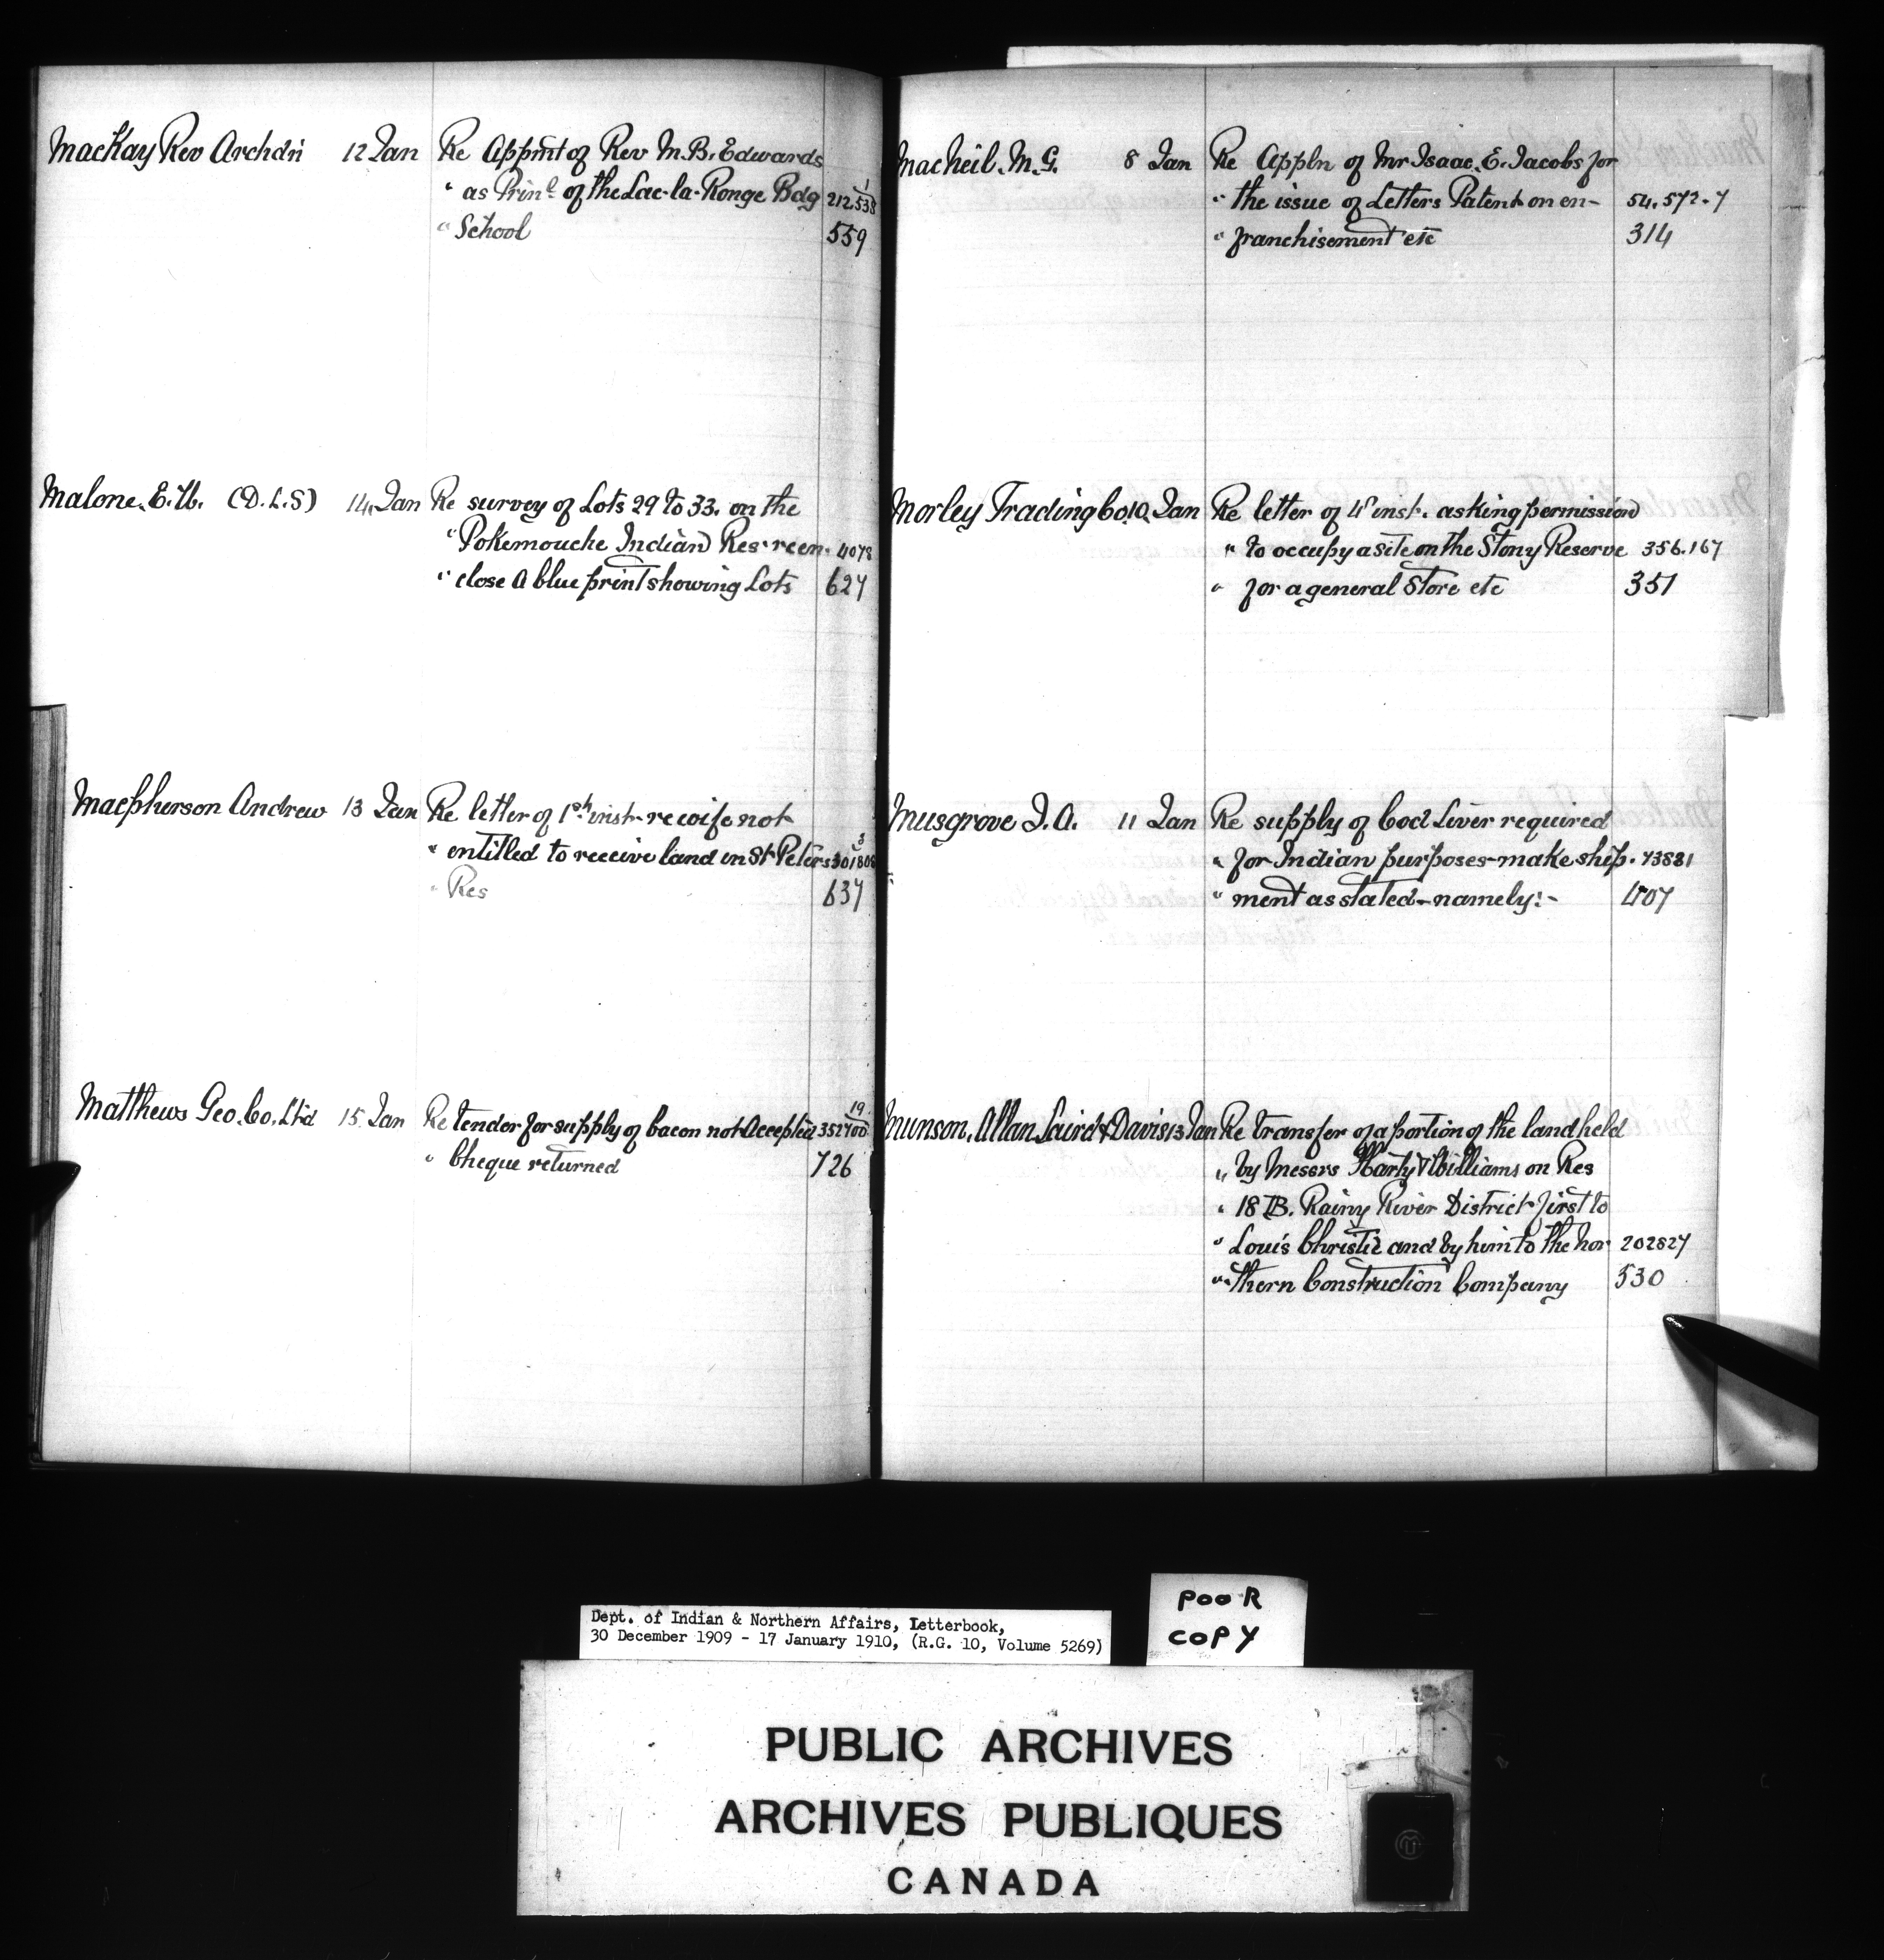 MacKay Rev Archdn 12 Jan Re Appmt of Rev M.B. Edwards
" as Prinl of the Lac-la-Ronge Bdg 212538 1
" School 559
Malone. E. W. (D.L.S) 14 Jan Re survey of Lots 29 to 33. on the
" Pokemouche Indian Res - re en- 4078
" close a blue print showing Lots 627
Macpherson Andrew 13 Jan Re letter of 1st inst - re wife not
" entitled to receive land in St Peters 301808 3
" Res 637
Matthews Geo. Co. Ltd 15 Jan Re tender for supply of bacon not Accepted 352700 19
" Cheque returned 726
MacNeil. M. G. 8 Jan Re Appln of Mr Isaac. E. Jacobs for
" the issue of Letters Patent on en- 54.572-7
" franchisement etc 314
Morley Trading Co. 10 Jan Re letter of 4th inst. asking permission
" to occupy a site on the Stony Reserve 356.167
" for a general Store etc 351
Musgrove J. A. 11 Jan Re supply of Cod Liver required
" for Indian purposes - make ship- 73881
" ment as stated - namely:- 407
Munson, Allan Laird & Davis 13 Jan Re transfer of a portion of the land held
" by Messrs & Williams on Res
" 18 B. Rainy River District first to
" Louis Christie and by him to the Nor 202827
" thern Construction Company 530
Dept. of Indian & Northern Affairs, Letterbook,
30 December 1909 - 17 January 1910, (R.G. 10, Volume 5269)
POOR
COPY
PUBLIC ARCHIVES
ARCHIVES PUBLIQUES
CANADA